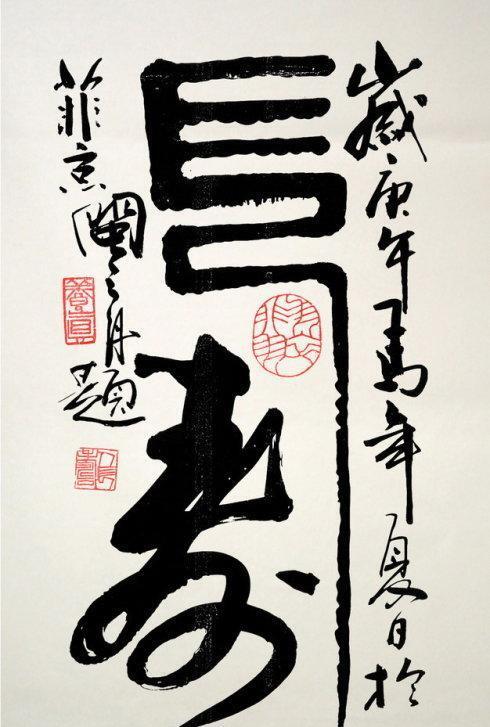 歲庚午馬年夏日於
長壽
菲京閩之舟題